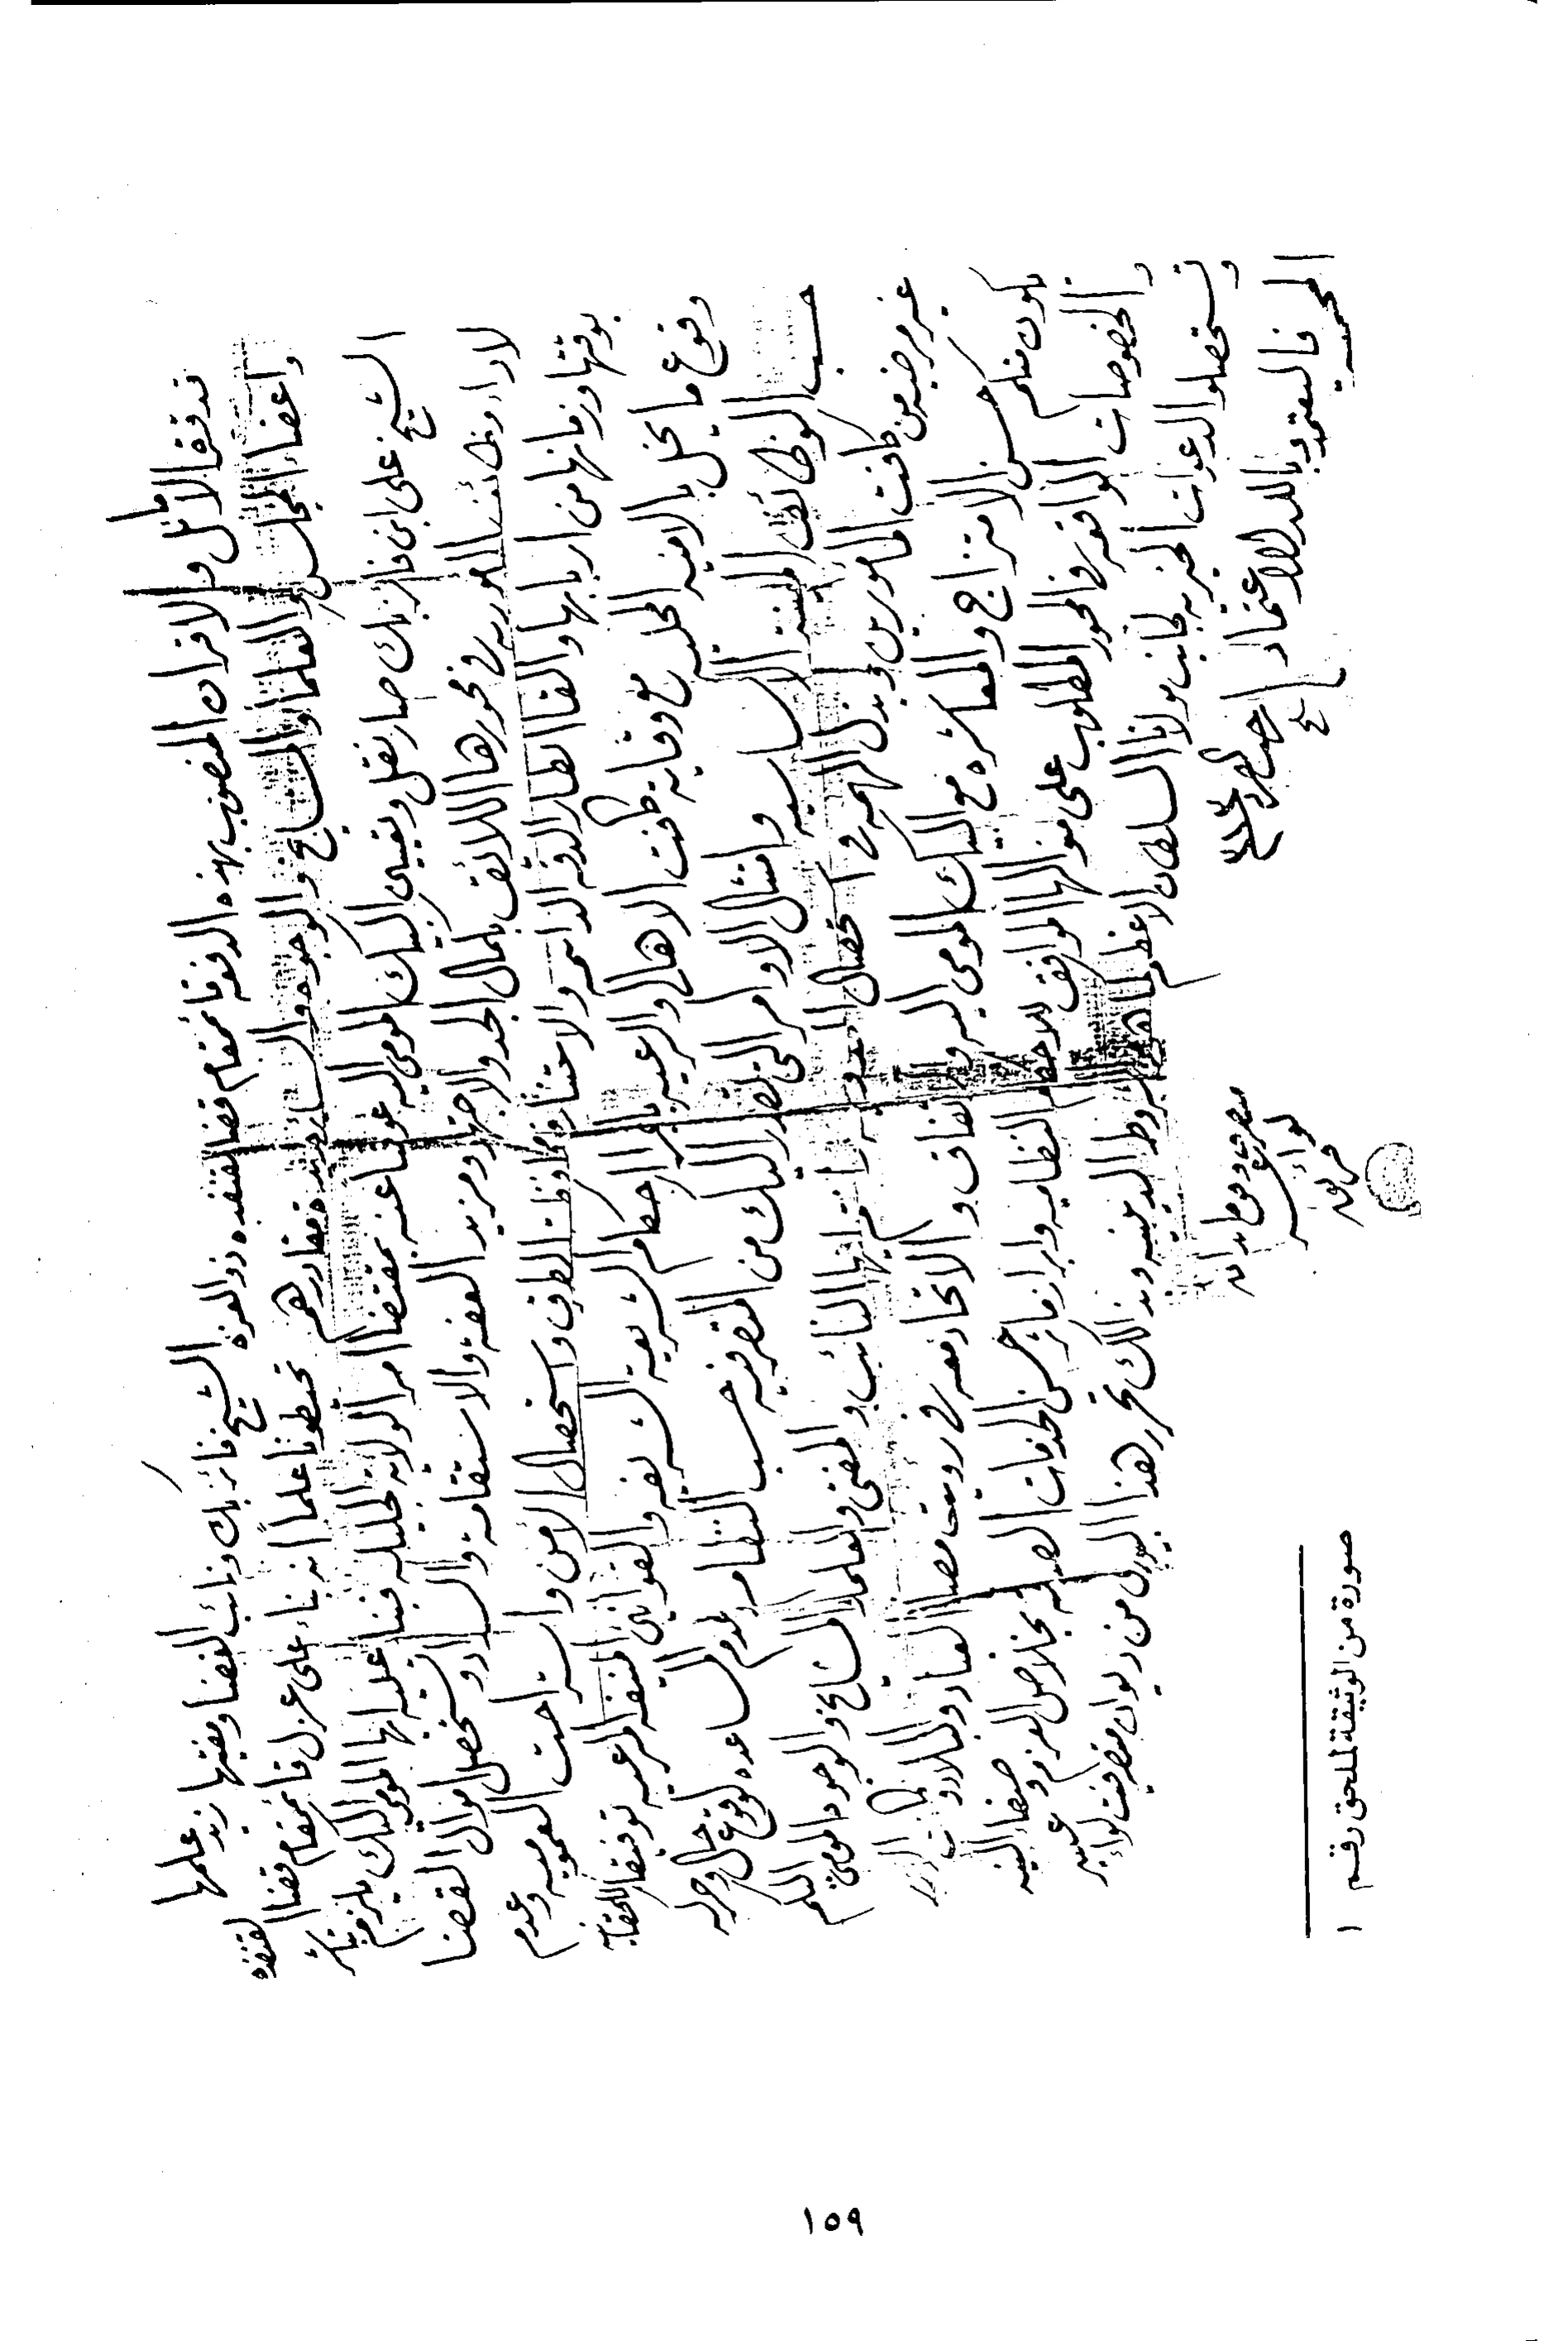 قدوة الأماثل والاقران المنصوب بهذه الدفعه قائمقام قضا القنفده ذو العزه الشيخ فائز بك ونائب القضا ومفتيها زيد علمها
واعضاء المجلس والعلما والمشايخ والوجوه والسائره زيده مقادرهم تحيطونا علماً انه بناء على عزل قائمقام قضا القنفده
الشيخ على ابن فائز بك صار نقل وتعيين البيك المومى اليه عوضا عنه بمقتضا امر الولاية الجليله فبنا عليه ايها المومى اليك يلزم تباشر
لاداء وظائف المأموريه في محورها اللائق بكمال الجد والاجتهاد ومزيد العفه والاستقامة والسداد وتستحصل اموال القضا
بوقتها وزمانها من اربابها والقا انظار الدقه الدائمه والاعتناء ومحافظت الطرق واستحصال الامن واستراحت العموميه وعدم
وقوع ما يخل بالامنيه المحليه مع وقاية كافت الاهالي والرعيه باجرا احكام الشريعية الشريفه والقوانين المنيفه المرعيه توفيقا للحقانيه
وامتثال الاوامر التي تصدر اليك من المتصرفيه حسب النظام وعدم المساعده لوقوع حال وحركه
حسب الوظائف المبينه الاساسيه
غير مرضيه من كافت المأمورين وبذل الهمه في استحصال انتم ايها النائب والمفتي والعلما والمشايخ والوجوه المومى اليكم
يكون منكم حسن الامتزاج والمعاشره مع البيك المومى اليه والاتفاق والاتحاد معه في رويت مصالح العباد والبلاد و
والخصوصات الواقعه في المحور المطلوب على منوالها الموافق للاحكام النظاميه وابراز مآثر حسن الخدمات الصدقه بخلاص العزم وصفاء النيه
وتستحصلوا الدعوات الخيريه لجانب مولانا السلطان الاعظم كما هو شروط الديعنيه وبذلك تحرر هذا البيورلدي من ديوان متصرفيت لواء عسير
المحميه فاليعتمد وبالله الاعتماد
متصرف وقومندان
لواء عسير
صورة من الوثيقة لملحق رقم ١
١٥٩